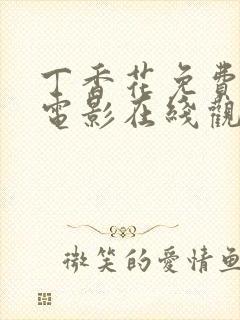 丁香花免費
電影在綫觀
微笑的愛情魚